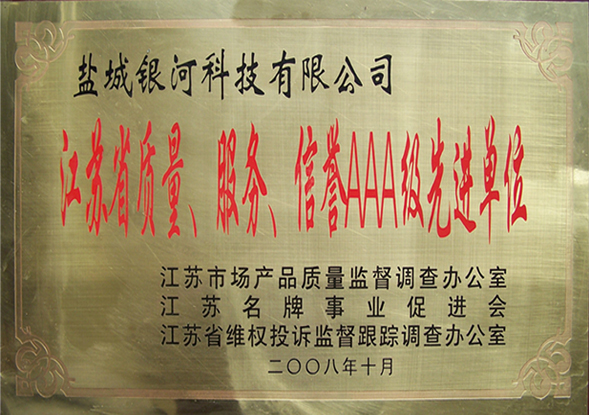 盐城银河科技有限公司
江苏省质量、服务、信誉AAA级先进单位
江苏市场产品质量监督调查办公室
江苏名牌事业促进会
江苏省维权投诉监督跟踪调查办公室
二〇〇八年十月